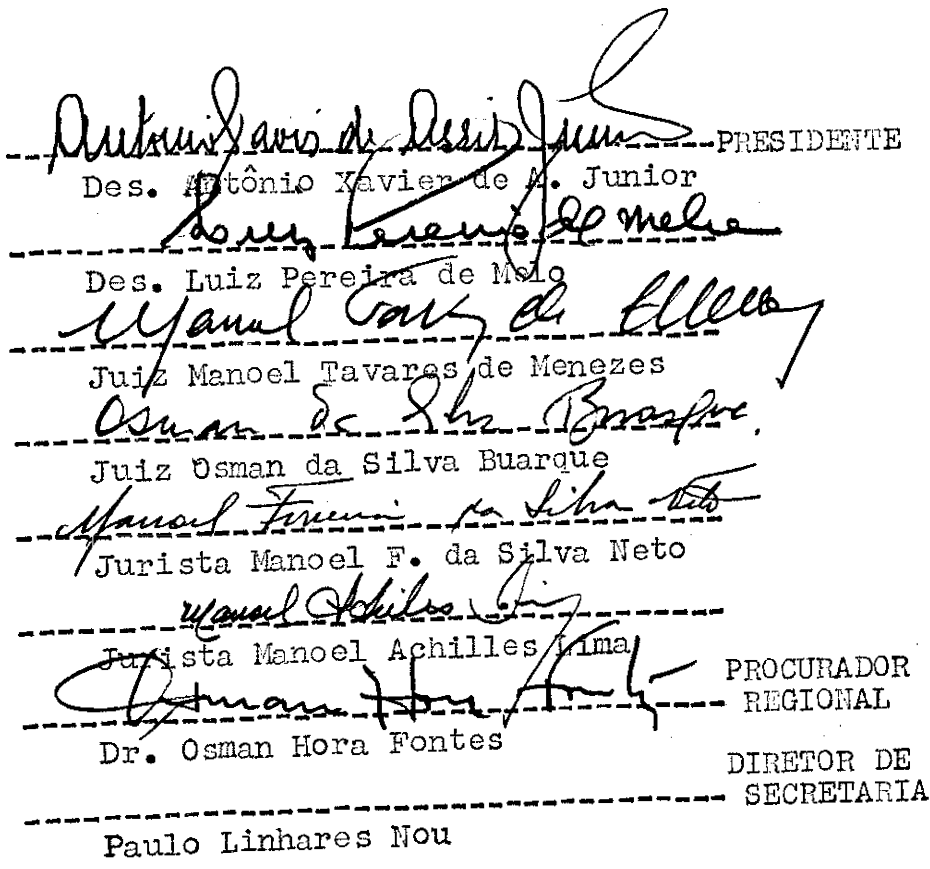 Antonio Xavier de Assis Junior PRESIDENTE
Des. Antônio Xavier de A. Junior
Luiz Pereira de Melo
Des. Luiz Pereira de Melo
Manoel Tavares de Menezes
Juiz Manoel Tavares de Menezes
Osman da Silva Buarque.
Juiz Osman da Silva Buarque
Manoel Ferreira da Silva Neto
Jurista Manoel F. da Silva Neto
Manoel Achiles Lima
Jurista Manoel Achilles Lima
PROCURADOR
Osman Hora Fontes REGIONAL
Dr. Osman Hora Fontes
DIRETOR DE
SECRETARIA
Paulo Linhares Nou